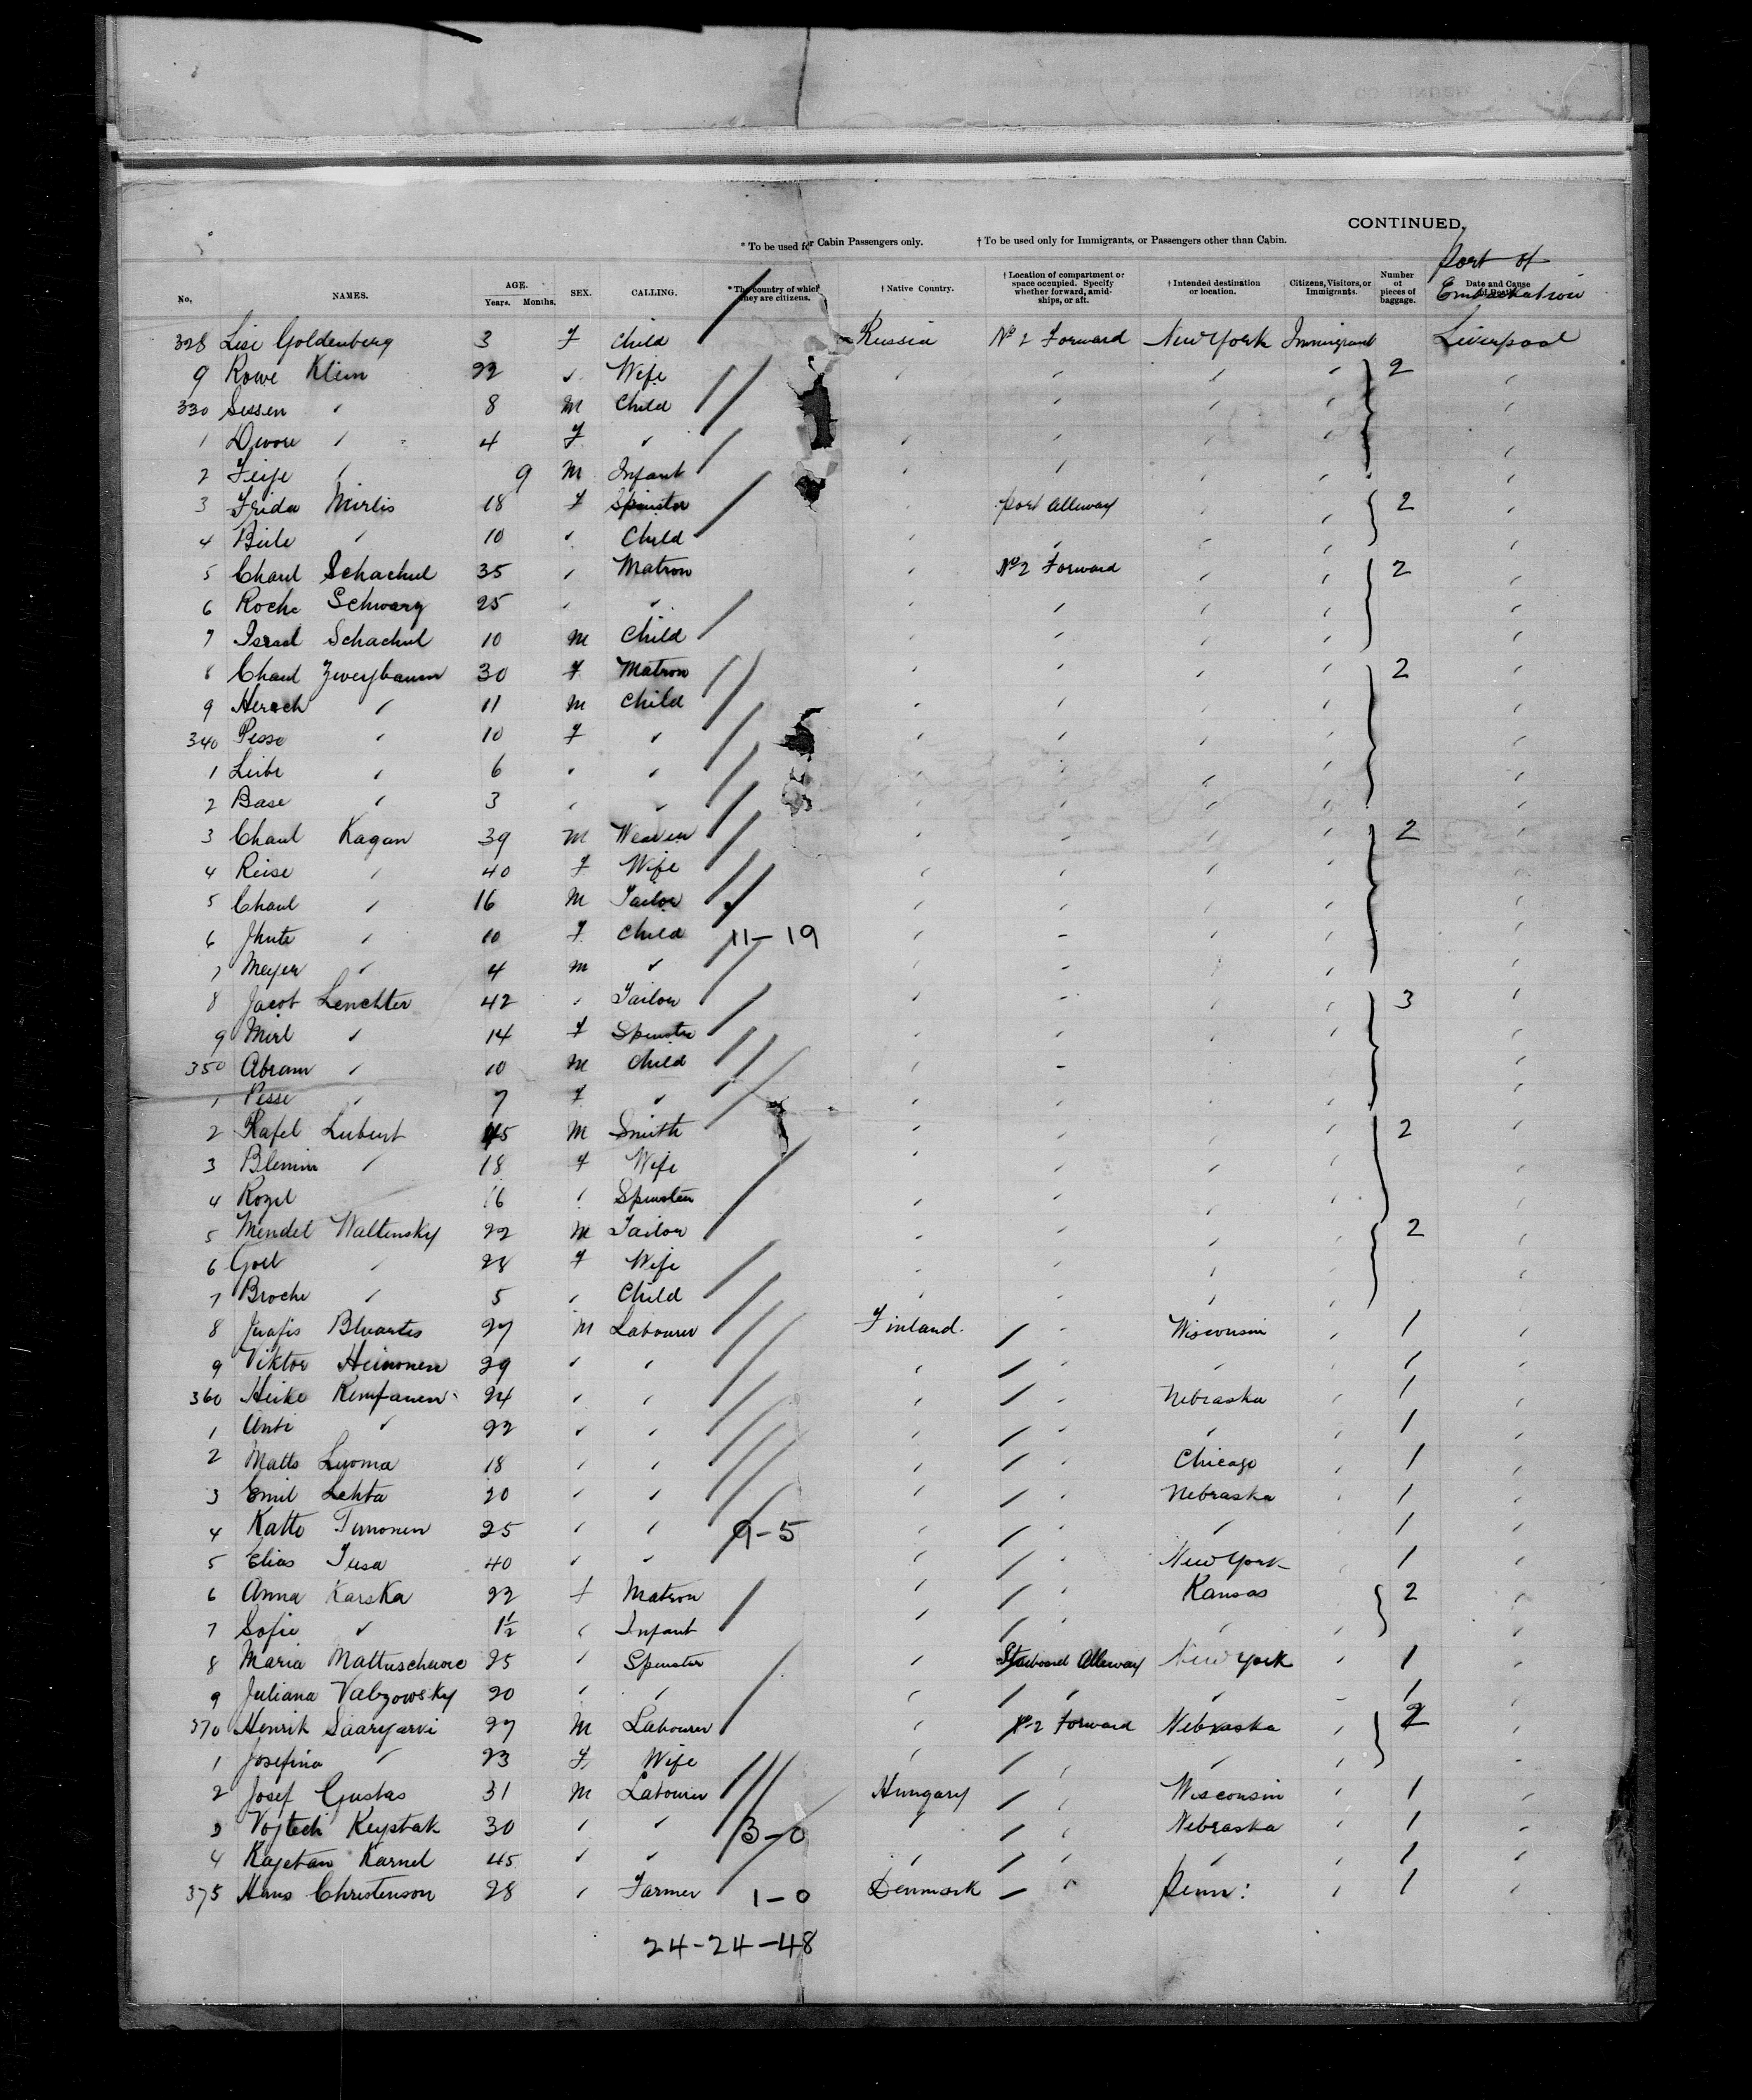 CONTINUED.
* To be used for Cabin Passengers only. † To be used only for Immigrants, or Passengers other than Cabin.
Port of Embarkation
No. NAMES. AGE. Years. Months. SEX. CALLING. * The country of which they are citizens. † Native Country. † Location of compartment or space occupied. Specify whether forward, amidships, or aft. † Intended destination or location. Citizens, Visitors, or Immigrants. Number of pieces of baggage. Date and Cause of Death.
328 Lise Goldenberg 3 F Child Russia No 2 Forward New York Immigrant Liverpool
9 Rowe Klein 22 " Wife " " " " 2 "
330 Sessen " 8 M Child " " " "
1 Dwore " 4 F " " " " " "
2 Feife " 9 M Infant " " " " "
3 Frida Mirlis 18 F Spinster " Port Alleway " " 2 "
4 Beile " 10 " Child " " " " "
5 Chaul Schachul 35 " Matron " No 2 Forward " " 2 "
6 Roche Schwarz 25 " " " " " " "
7 Israel Schachul 10 M Child " " " " "
8 Chaul Zweybaum 30 F Matron " " " " 2 "
9 Hersch " 11 M Child " " " " "
340 Pesse " 10 F " " " " " "
1 Leibe " 6 " " " " " " "
2 Base " 3 " " " " " " "
3 Chaul Kagan 39 M Weaver " " " " 2 "
4 Reise " 40 F Wife " " " " "
5 Chaul " 16 M Tailor " " " " "
6 " 10 F Child 11-19 " " " " "
7 Meyer " 4 M " " " " " "
8 Jacob Lenchter 42 " Tailor " " " " 3 "
9 Mirl " 14 F Spinster " " " " "
350 Abram " 10 M Child " " " " "
1 Pesse " 7 F " " " " " "
2 Rafel 45 M Smith " " " " 2 "
3 " 18 F Wife " " " " "
4 Rozel 16 " Spinster " " " " "
5 Mendel Waltensky 22 M Tailor " " " " 2 "
6 " 28 F Wife " " " " "
7 Broche " 5 " Child " " " " "
8 27 M Labourer Finland " " Wisconsin " 1 "
9 Viktor Heinonen 29 " " " " " " " 1 "
360 Heike Kempanen 24 " " " " " Nebraska " 1 "
1 Anti " 22 " " " " " " " 1 "
2 Matts Luoma 18 " " " " " Chicago " 1 "
3 Emil Lehta 20 " " " " " Nebraska " 1 "
4 Katto 25 " " 9-5 " " " " " 1 "
5 Elias Tusa 40 " " " " " New York " 1 "
6 Anna Karska 22 F Matron " " " Kansas " 2 "
7 Sofie " 1½ " Infant " " " " " "
8 Maria Mattuschewic 25 " Spinster " Starboard Alleway New York " 1 "
9 Juliana Valzowsky 20 " " " " " " " 1 "
370 Henrik Saaryarvi 27 M Labourer " No 2 Forward Nebraska " 2 "
1 Josefina " 23 F Wife " " " " " "
2 Josef Gustas 31 M Labourer Hungary " " Wisconsin " 1 "
3 Vojtech Keystak 30 " " 3-0 " " Nebraska " 1 "
4 Kajetan Karnel 45 " " " " " " " 1 "
375 Hans Christenson 28 " Farmer 1-0 Denmark " " Penn: " 1 "
24-24-48